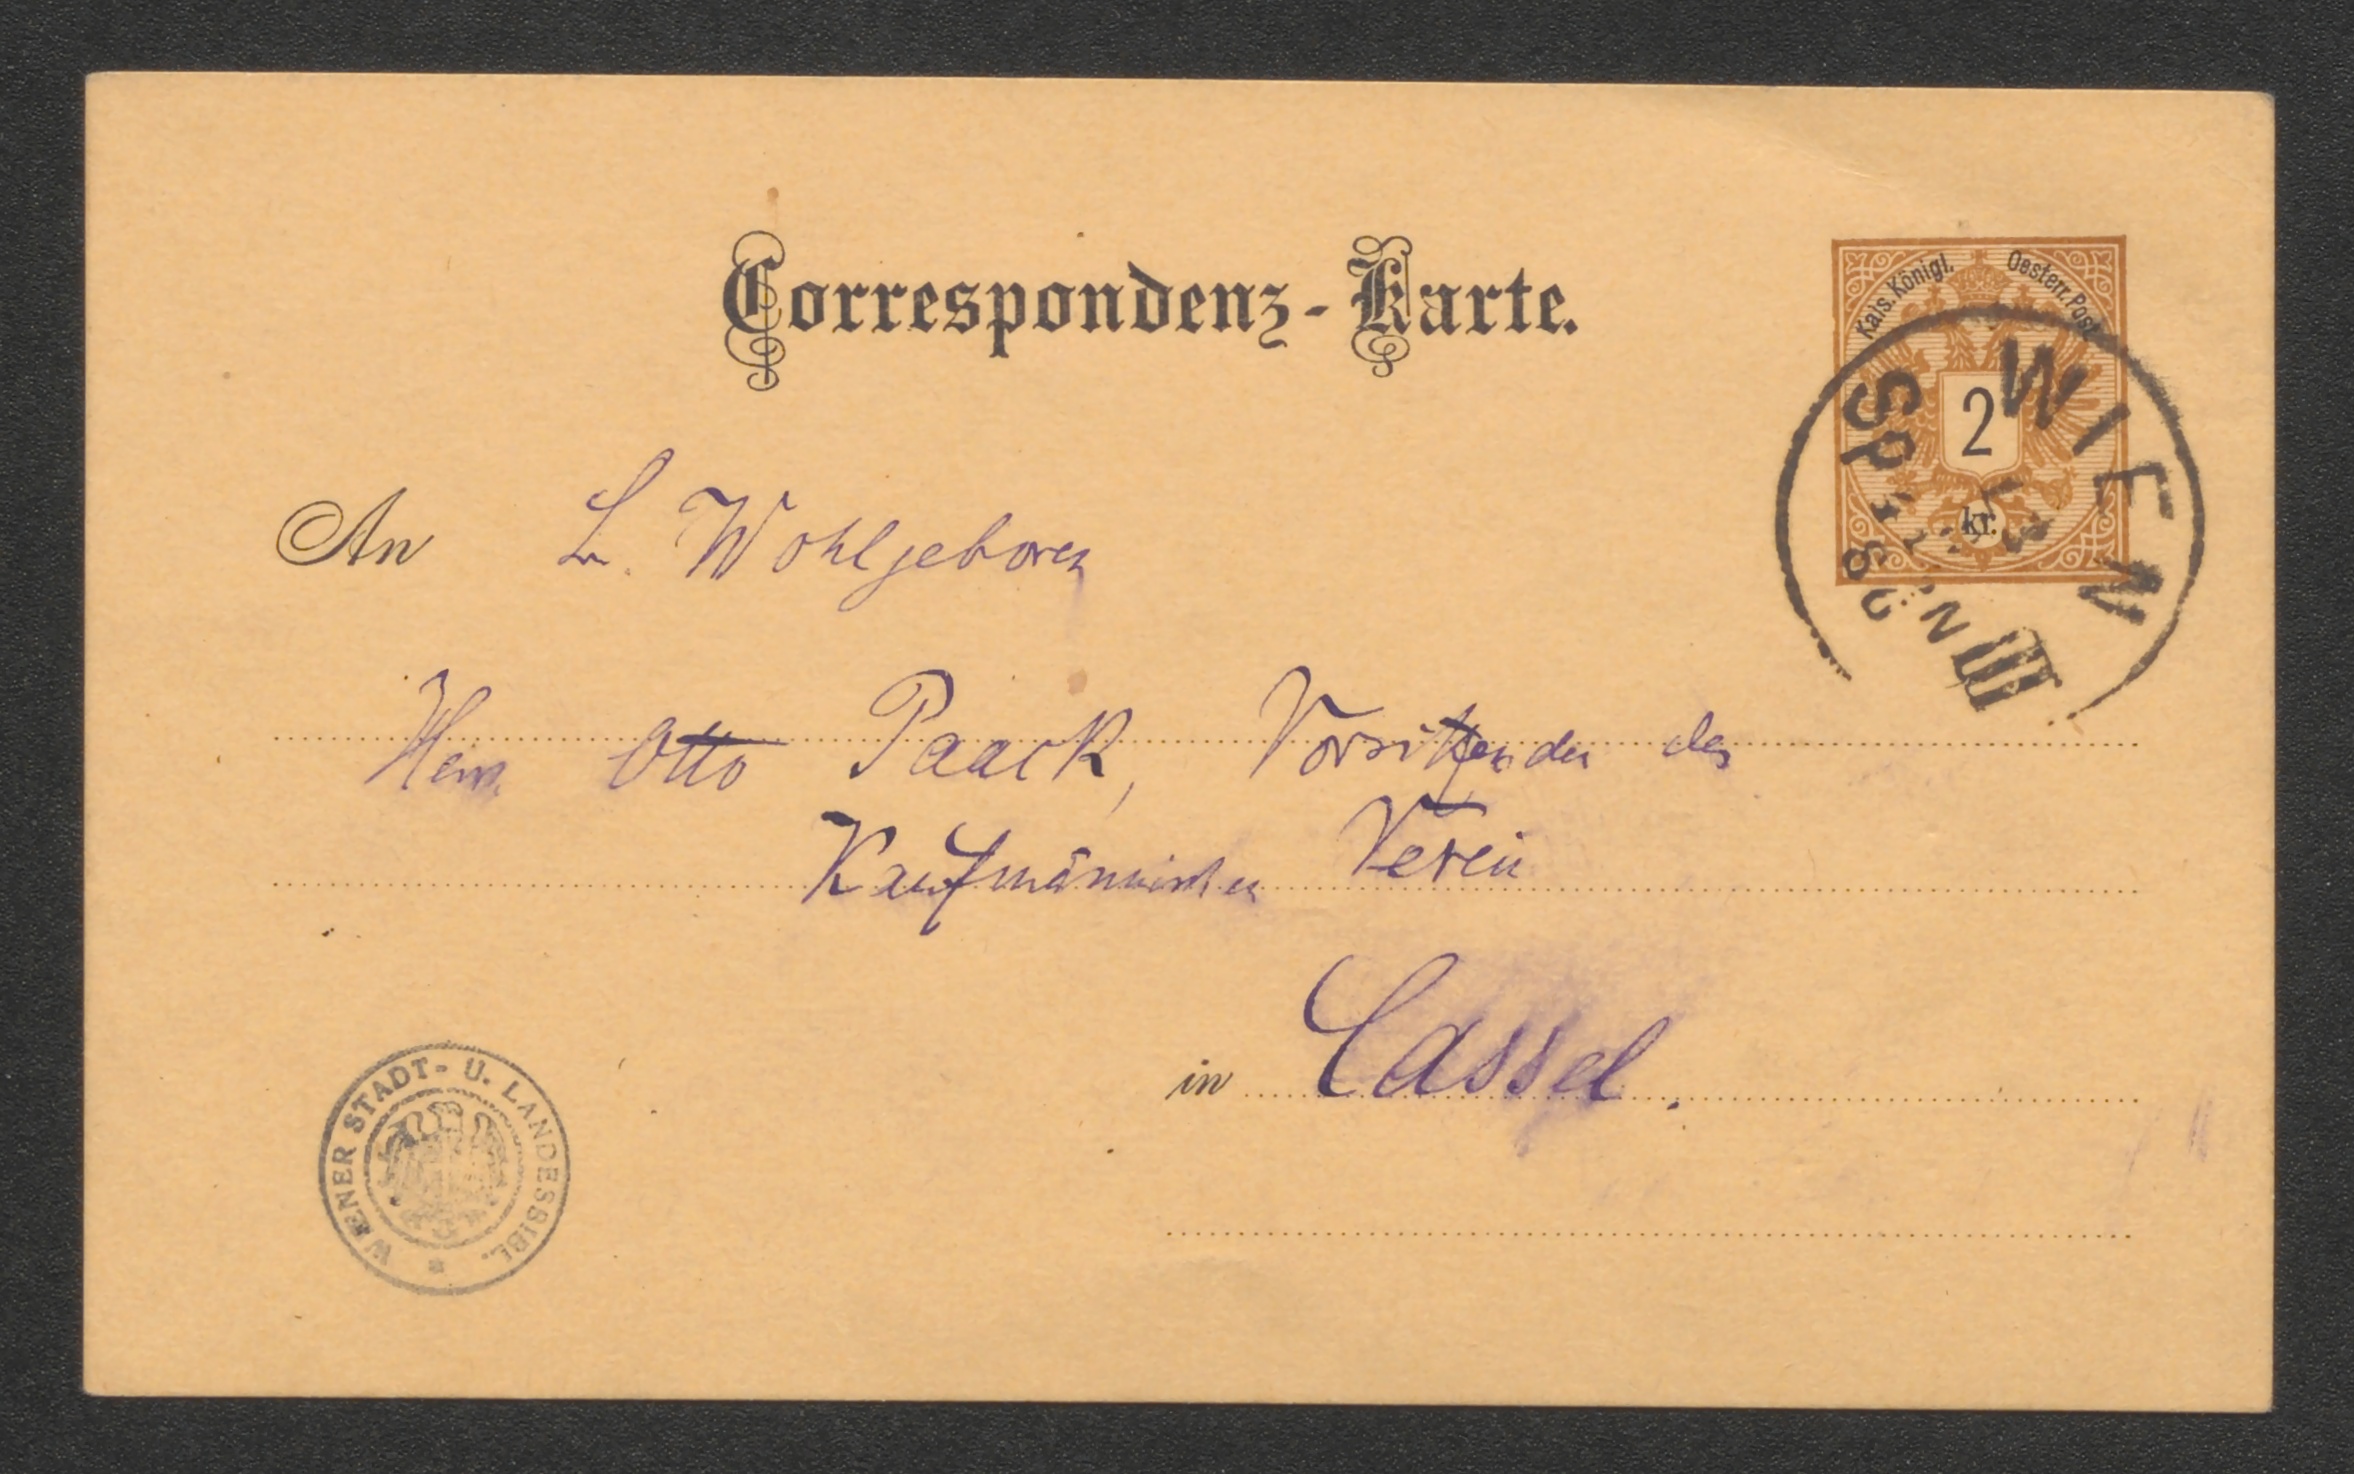 Correspondenz-Karte.
Kais. Königl. Oesterr. Post
2
kr.
WIEN
III
An S. Wohlgeboren
Herrn Otto Paack, Vorsitzender des
Kaufmännischen Verein
in Cassel.
WIENER STADT- U. LANDESBIBL.